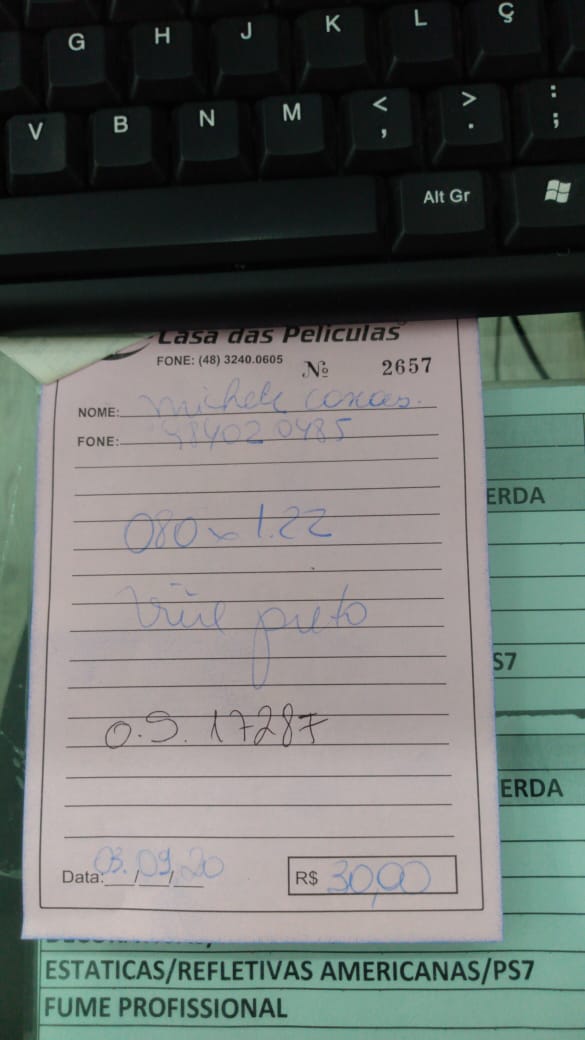 G H J K L Ç
V B N M < , > . : ;
Alt Gr
Casa das Películas
FONE: (48) 3240.0605 Nº 2657
NOME: Michele
FONE: 984020485
080 x 1.22
preto
O.S. 17287
Data: 03/09/20 R$ 30,00
ERDA
S7
ERDA
ESTATICAS/REFLETIVAS AMERICANAS/PS7
FUME PROFISSIONAL